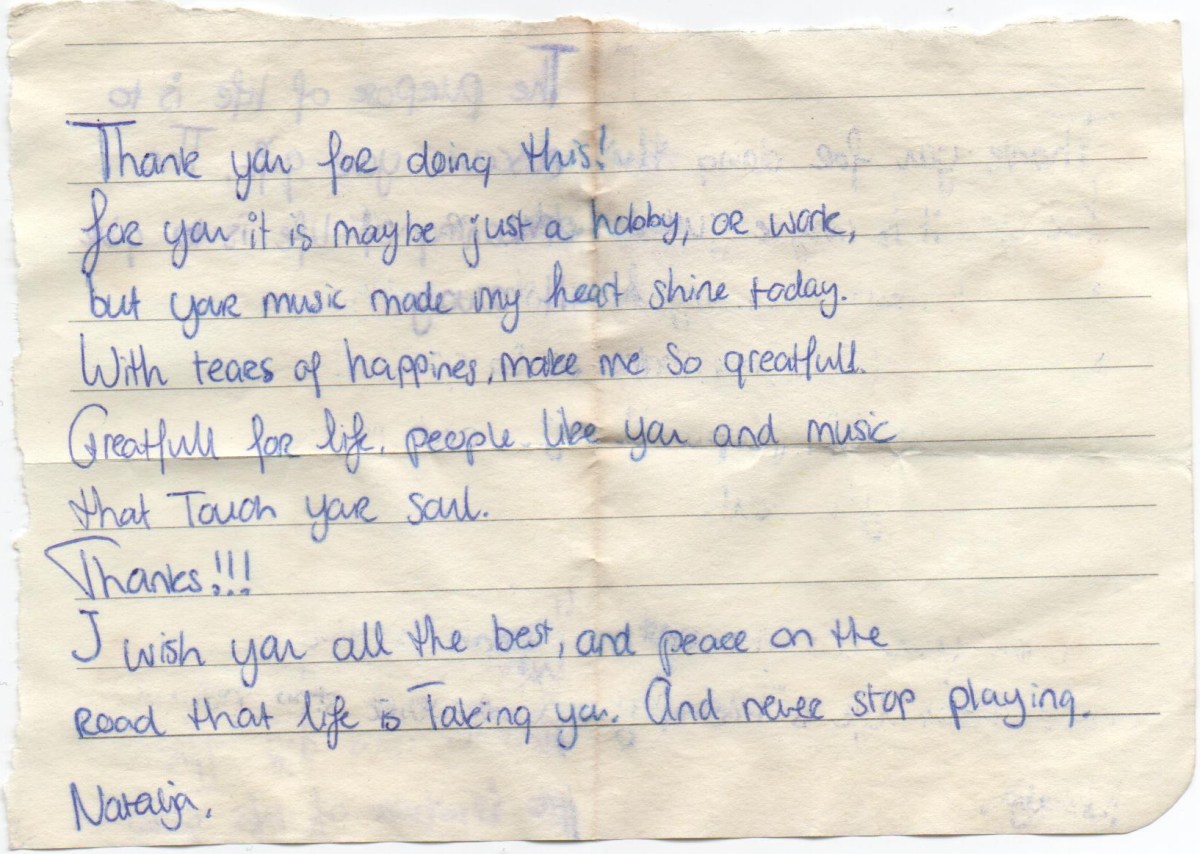 Thank you for doing this!
for you it is maybe just a hobby, or work,
but your music made my heart shine today.
With tears of happines, make me so greatfull.
Greatfull for life, people like you and music
that Touch your soul.
Thanks!!!
I wish you all the best, and peace on the
road that life is Taking you. And never stop playing.
Natalja.